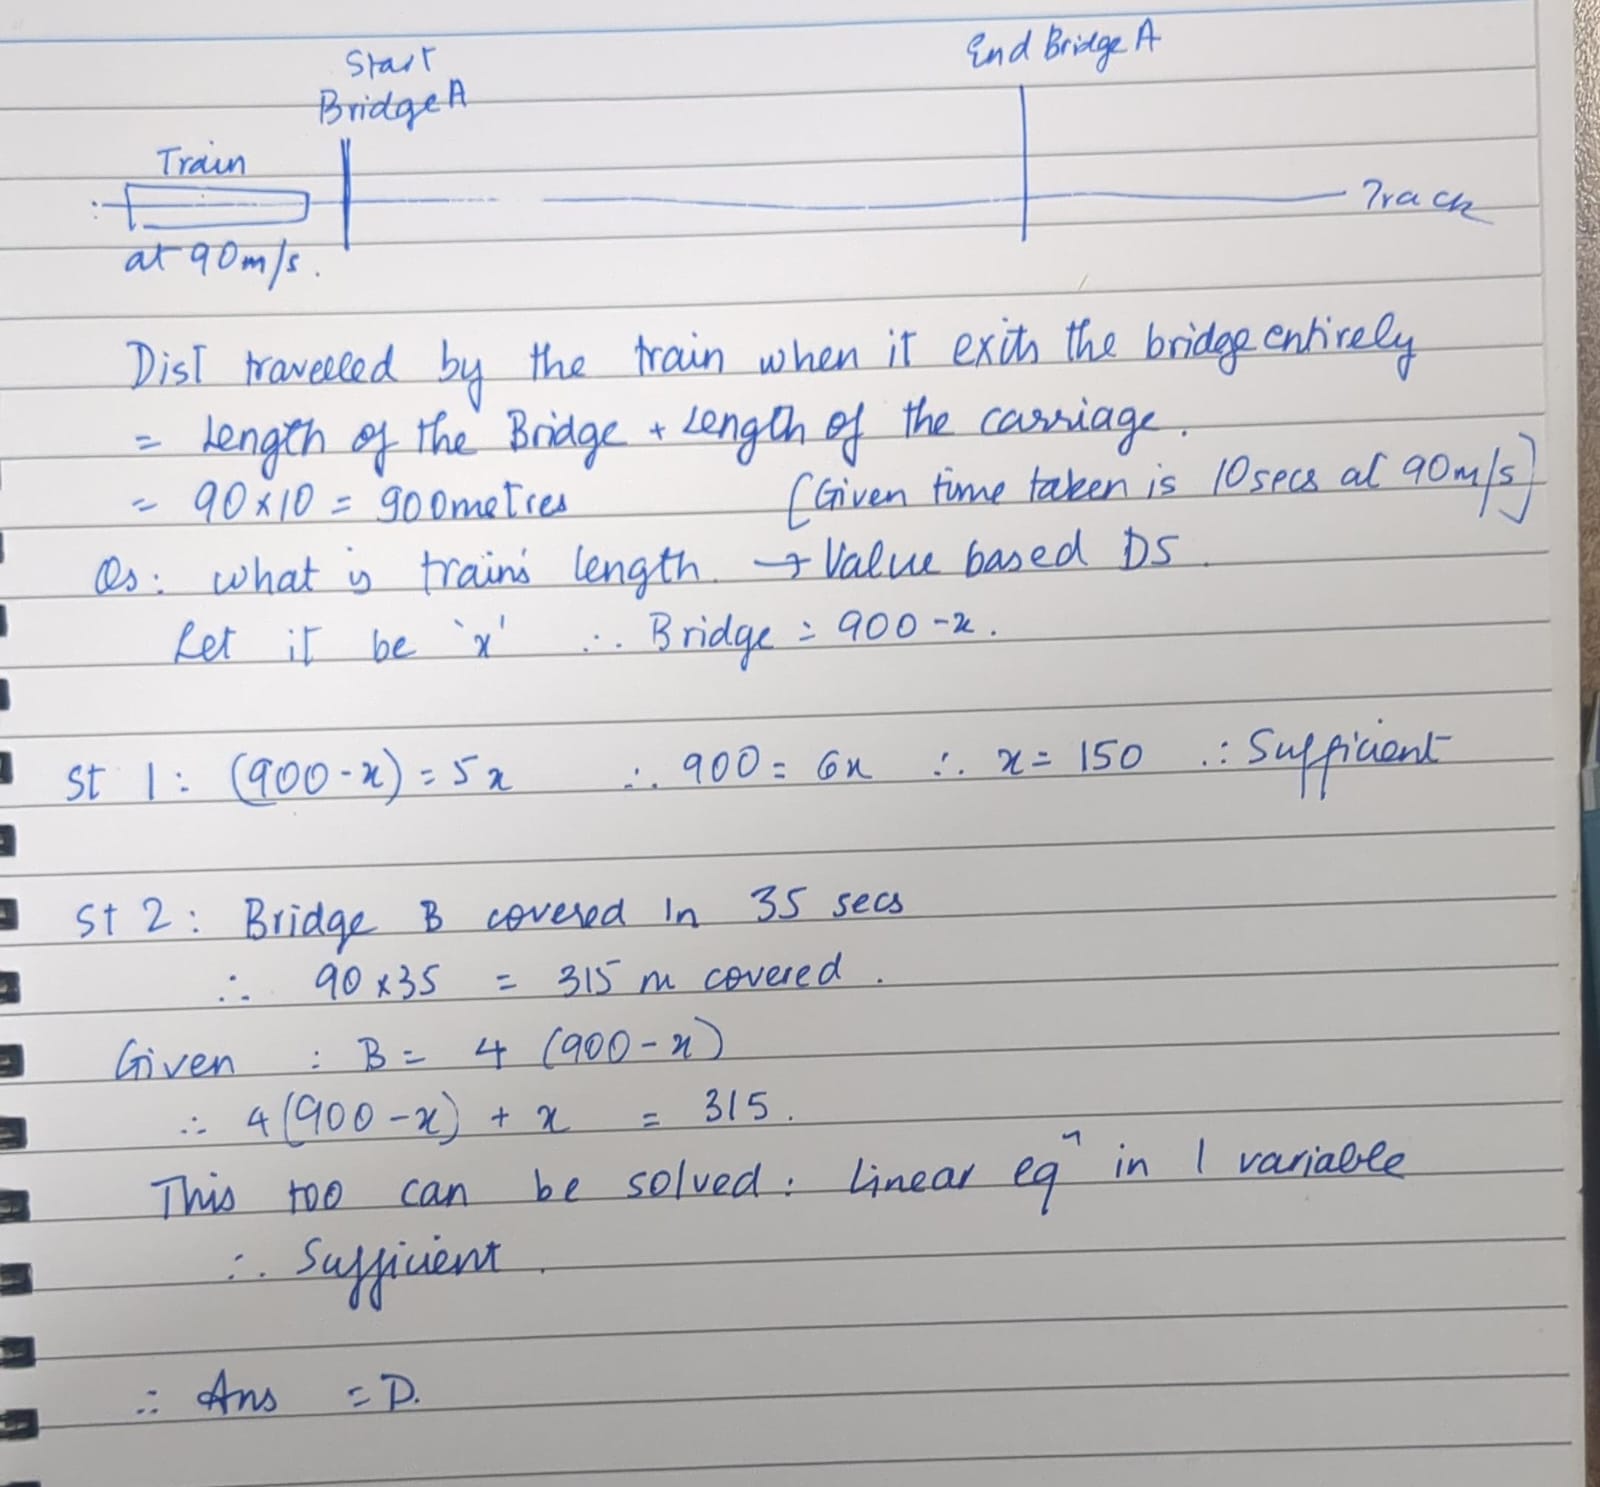 Start
Bridge A
End Bridge A
Train
Track
at 90m/s.
Dist travelled by the train when it exits the bridge entirely
= Length of the Bridge + Length of the carriage.
= 90x10 = 900metres [Given time taken is 10secs at 90m/s]
Qs: what is train's length. → Value based DS.
Let it be 'x' ∴ Bridge = 900-x.
St 1: (900-x) = 5x ∴ 900 = 6x ∴ x = 150 ∴ Sufficient
St 2: Bridge B covered In 35 secs
∴ 90x35 = 315 m covered.
Given : B = 4 (900-x)
∴ 4(900-x) + x = 315.
This too can be solved: Linear eqⁿ in 1 variable
∴ Sufficient.
∴ Ans = D.